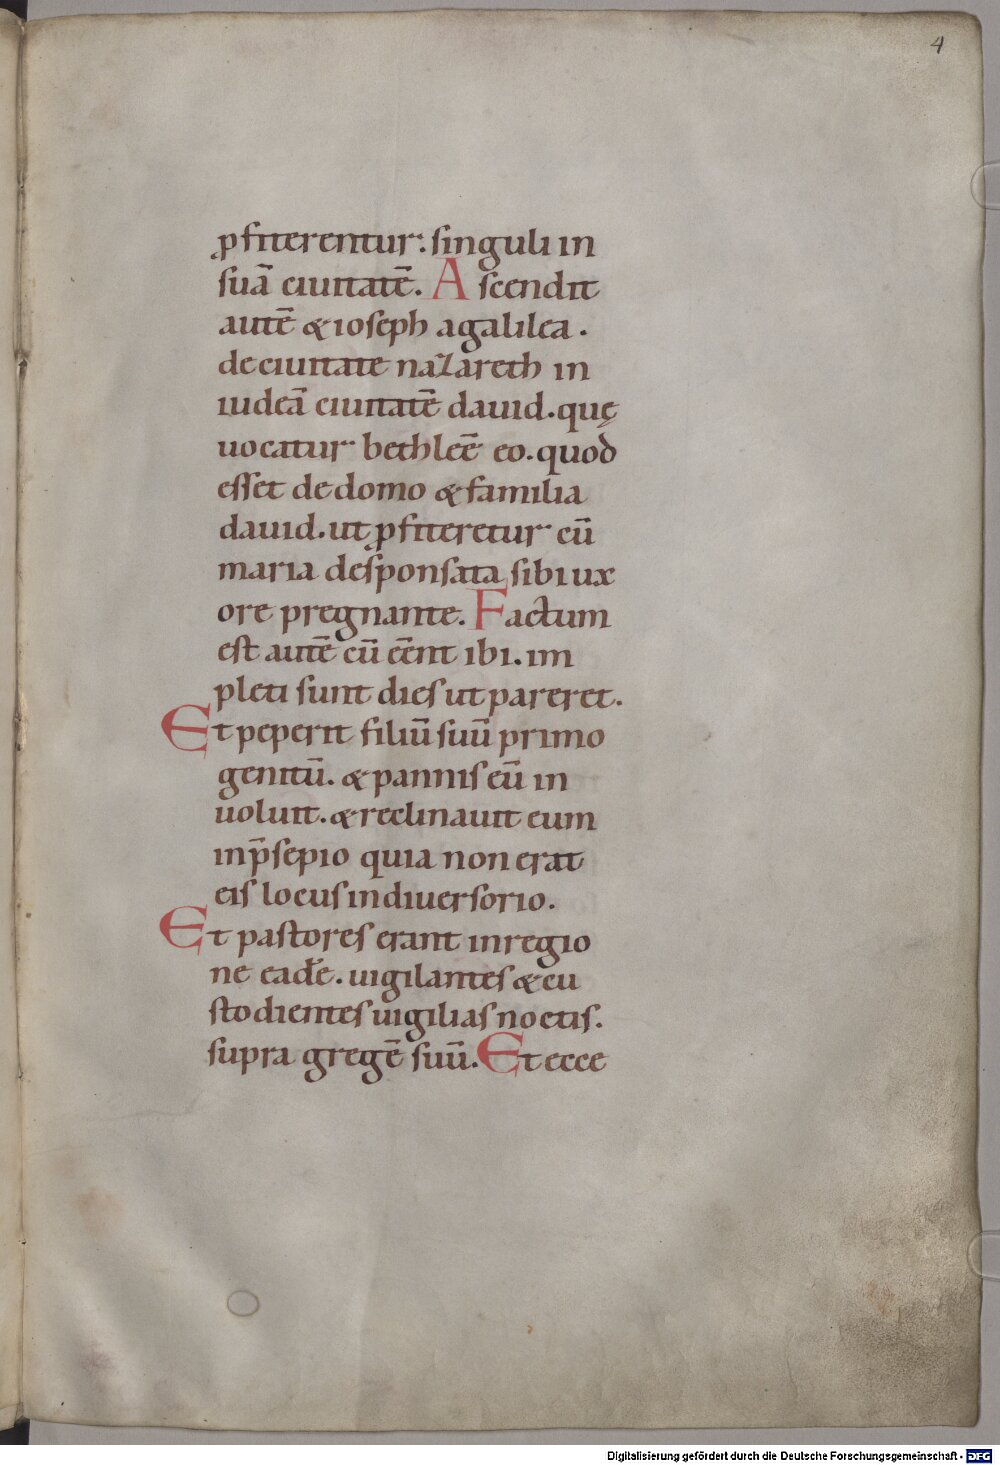 4
ꝓfiterentur. singuli in
suā ciuitatē. Ascendit
autē & ioseph a galilea.
de ciuitate nazareth in
iudeā ciuitatē dauid. quę
uocatur bethleē eo. quod
esset de domo & familia
dauid. ut ꝓfiteretur cū
maria desponsata sibi ux
ore pregnante. Factum
est autē cū eēnt ibi. im
pleti sunt dies ut pareret.
Et peperit filiū suū primo
genitū. & pannis eū in
uoluit. & reclinauit eum
in p̄sepio quia non erat
eis locus in diuersorio.
Et pastores erant in regio
ne eadē. uigilantes & cu
stodientes uigilias noctis.
supra gregē suū. Et ecce
Digitalisierung gefördert durch die Deutsche Forschungsgemeinschaft - DFG